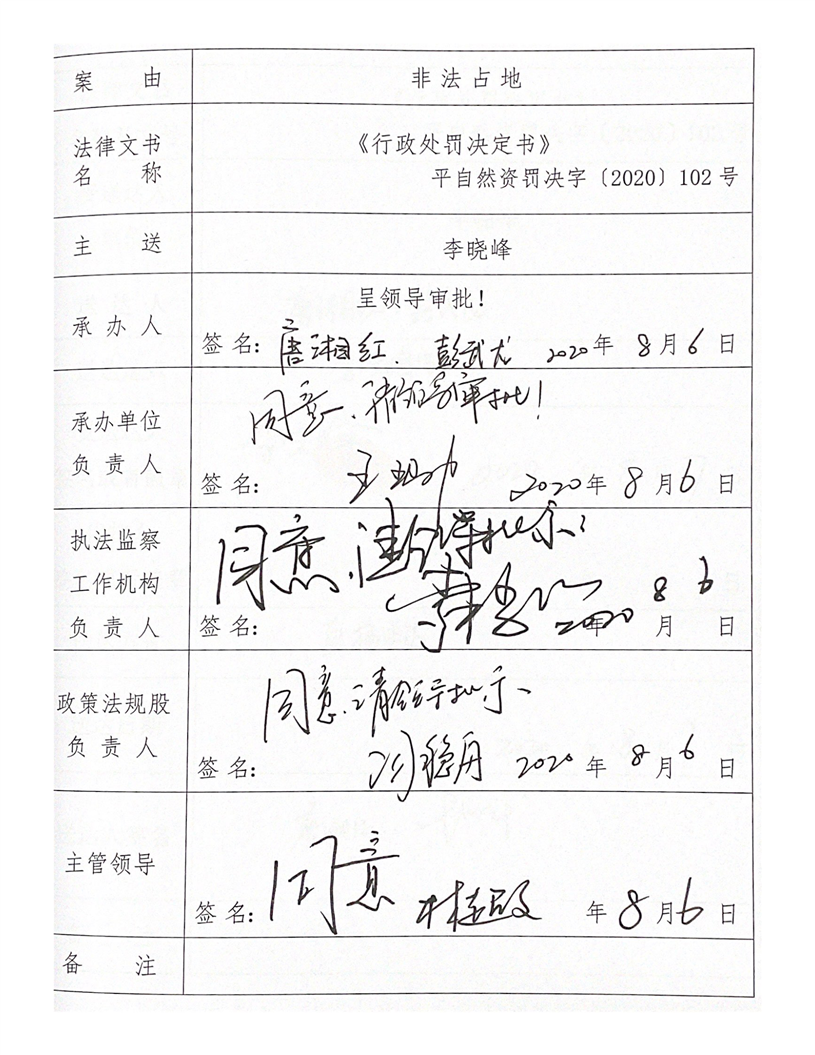 案 由
非法占地
法律文书
名 称
《行政处罚决定书》
平自然资罚决字〔2020〕102号
主 送
李晓峰
承 办 人
呈领导审批！
签 名：唐湘红、彭武尤 2020年 8月6日
承办单位
负 责 人
同意、请领导审批！
签 名： 2020年 8月6日
执法监察
工作机构
负 责 人
同意、请领导批示！
签 名： 2020年 8月6日
政策法规股
负 责 人
同意、请领导批示、
签 名： 2020年 8月6日
主管领导
同意
签 名： 年 8月6日
备 注